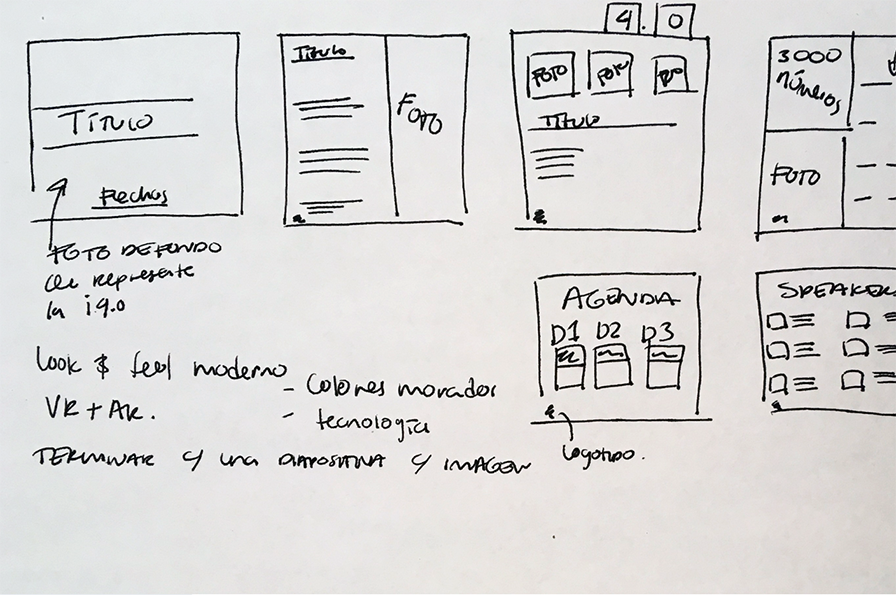 TÍTULO
Fechos
FOTO DE FONDO
represente
la i4.0
Título
FOTO
4.0
FOTO FOTO
TÍTULO
3000
NÚMEROS
FOTO
AGENDA
D1 D2 D3
Logotipo.
SPEAKER
look & feel moderno
- Colores morados
VR + AR.
- tecnología
TERMINAR c/ una DIAPOSITIVA c/ IMAGEN